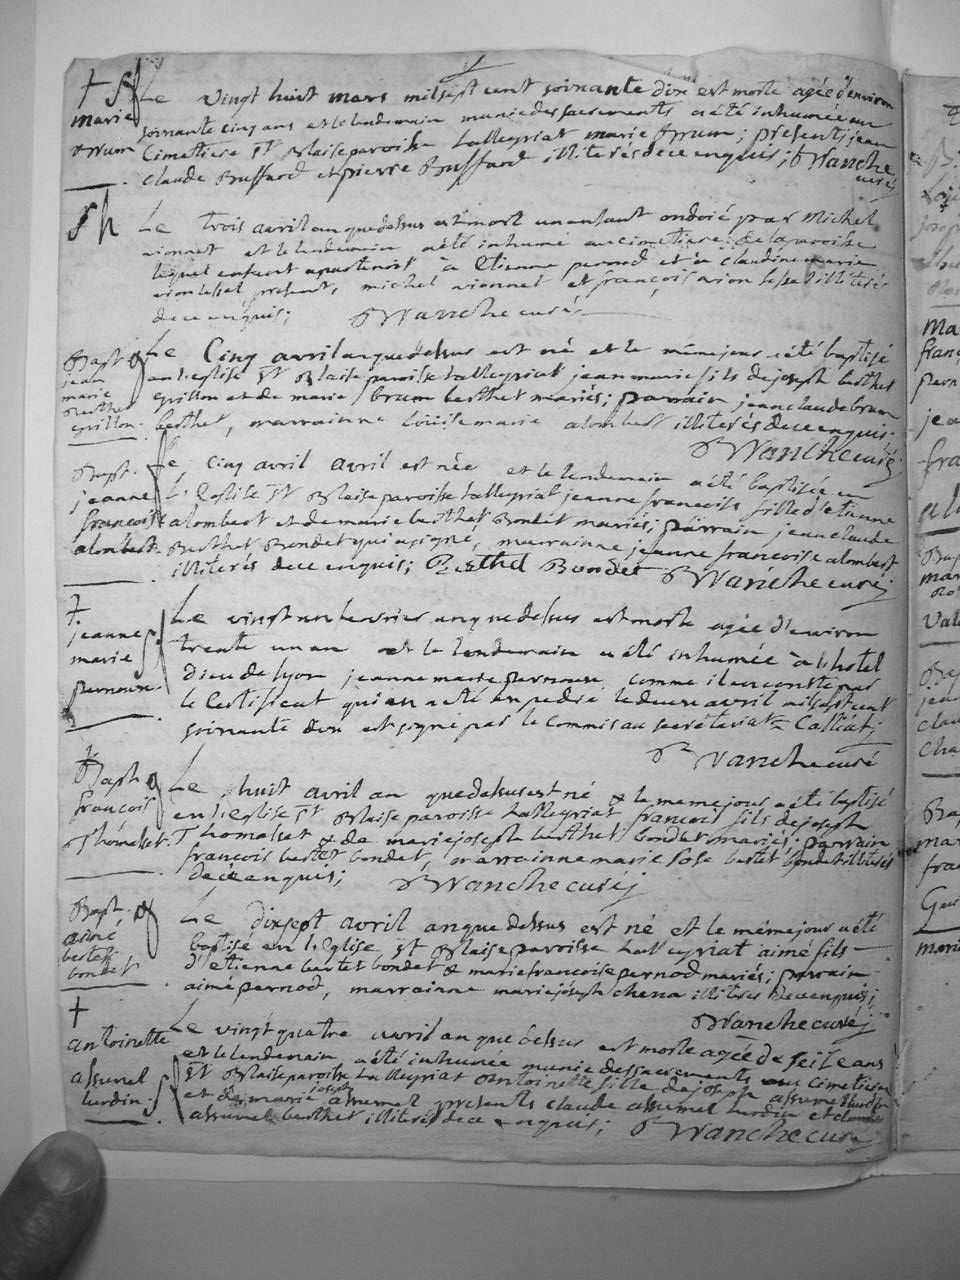 + Sh
marie
brum
Le vingt huit mars mil sept cent soixante dix est morte agée d'environ
soixante cinq ans et le lendemain munie des sacrements a été inhumée au
Cimettiere St Blaise paroisse talleyriat marie brum; présents jean
claude Buffard et pierre Buffard illiterés de ce enquis; P Wanche
curé
Sh
Le trois avril an que dessus est mort un enfant ondoié par Michel
vionnet et le lendemain a été inhumé au cimetiere de la paroisse
lequel enfant apartenoit à Etienne pernod et à claudine marie
present, michel vionnet et françois illiterés
de ce enquis; P Wanche curé
Bapt
jean
marie
Berthet
grillon
Le Cinq avril an que dessus est né et le même jour a été baptisé
en l'eglise St Blaise paroisse talleyriat jean marie fils de joseph berthet
grillon et de marie brum berthet mariés; parrain jean claude brum
berthet, marrainne louise marie alombert illiterés de ce enquis.
P Wanche curé
Bapt.
jeanne
françoise
alombert.
Le cinq avril avril est née et le lendemain a été baptisée en
l'eglise St Blaise paroisse talleyriat jeanne françoise fille d'etienne
alombert et de marie berthet Bondet mariés; parrain jean claude
Berthet Bondet qui a signé, marrainne jeanne françoise alombert
illiterés de ce enquis; Berthet Bondet P Wanche curé
+
jeanne
marie
pernoux
Le vingt un fevrier an que dessus est morte agée d'environ
trente un an et le lendemain a été inhumée à l'hotel
dieu de lyon jeanne marie pernoux comme il en conste par
le Certificat qui en a été expedié le deux avril mil sept cent
soixante dix est signé par le Commis au secrétariat
P Wanche curé
Bapt
françois
Thomasset
Le huit avril an que dessus est né & le meme jour a été baptisé
en l'eglise St Blaise paroisse talleyriat françois fils de joseph
Thomasset & de marie joseph berthet bondet mariés; parrain
françois bertet bondet, marrainne marie bertet bondet illiterés
de ce enquis; P Wanche curé
Bapt
aimé
bertet
bondet
Le dix sept avril an que dessus est né et le même jour a été
baptisé en l'Eglise St Blaise paroisse talleyriat aimé fils
d'etienne bertet bondet & marie francoise pernod mariés; parrain
aimé pernod, marrainne marie joseph chena illiterés de ce enquis;
P Wanche curé
+
antoinette
assumel
lurdin
Le vingt quatre avril an que dessus est morte agée de seize ans
et le lendemain a été inhumée munie des sacrements au cimetiere
St Blaise paroisse talleyriat Antoinette fille de joseph assumel lurdin
et de marie joseph assumel presents claude assumel lurdin et claude
assumel berthet illiterés de ce enquis; P Wanche curé